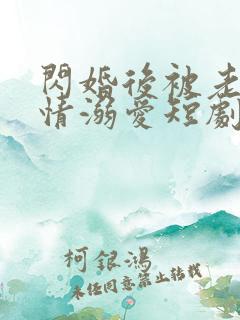 閃婚後被老
情溺愛短劇
柯銀鴻
未經同意禁止轉載